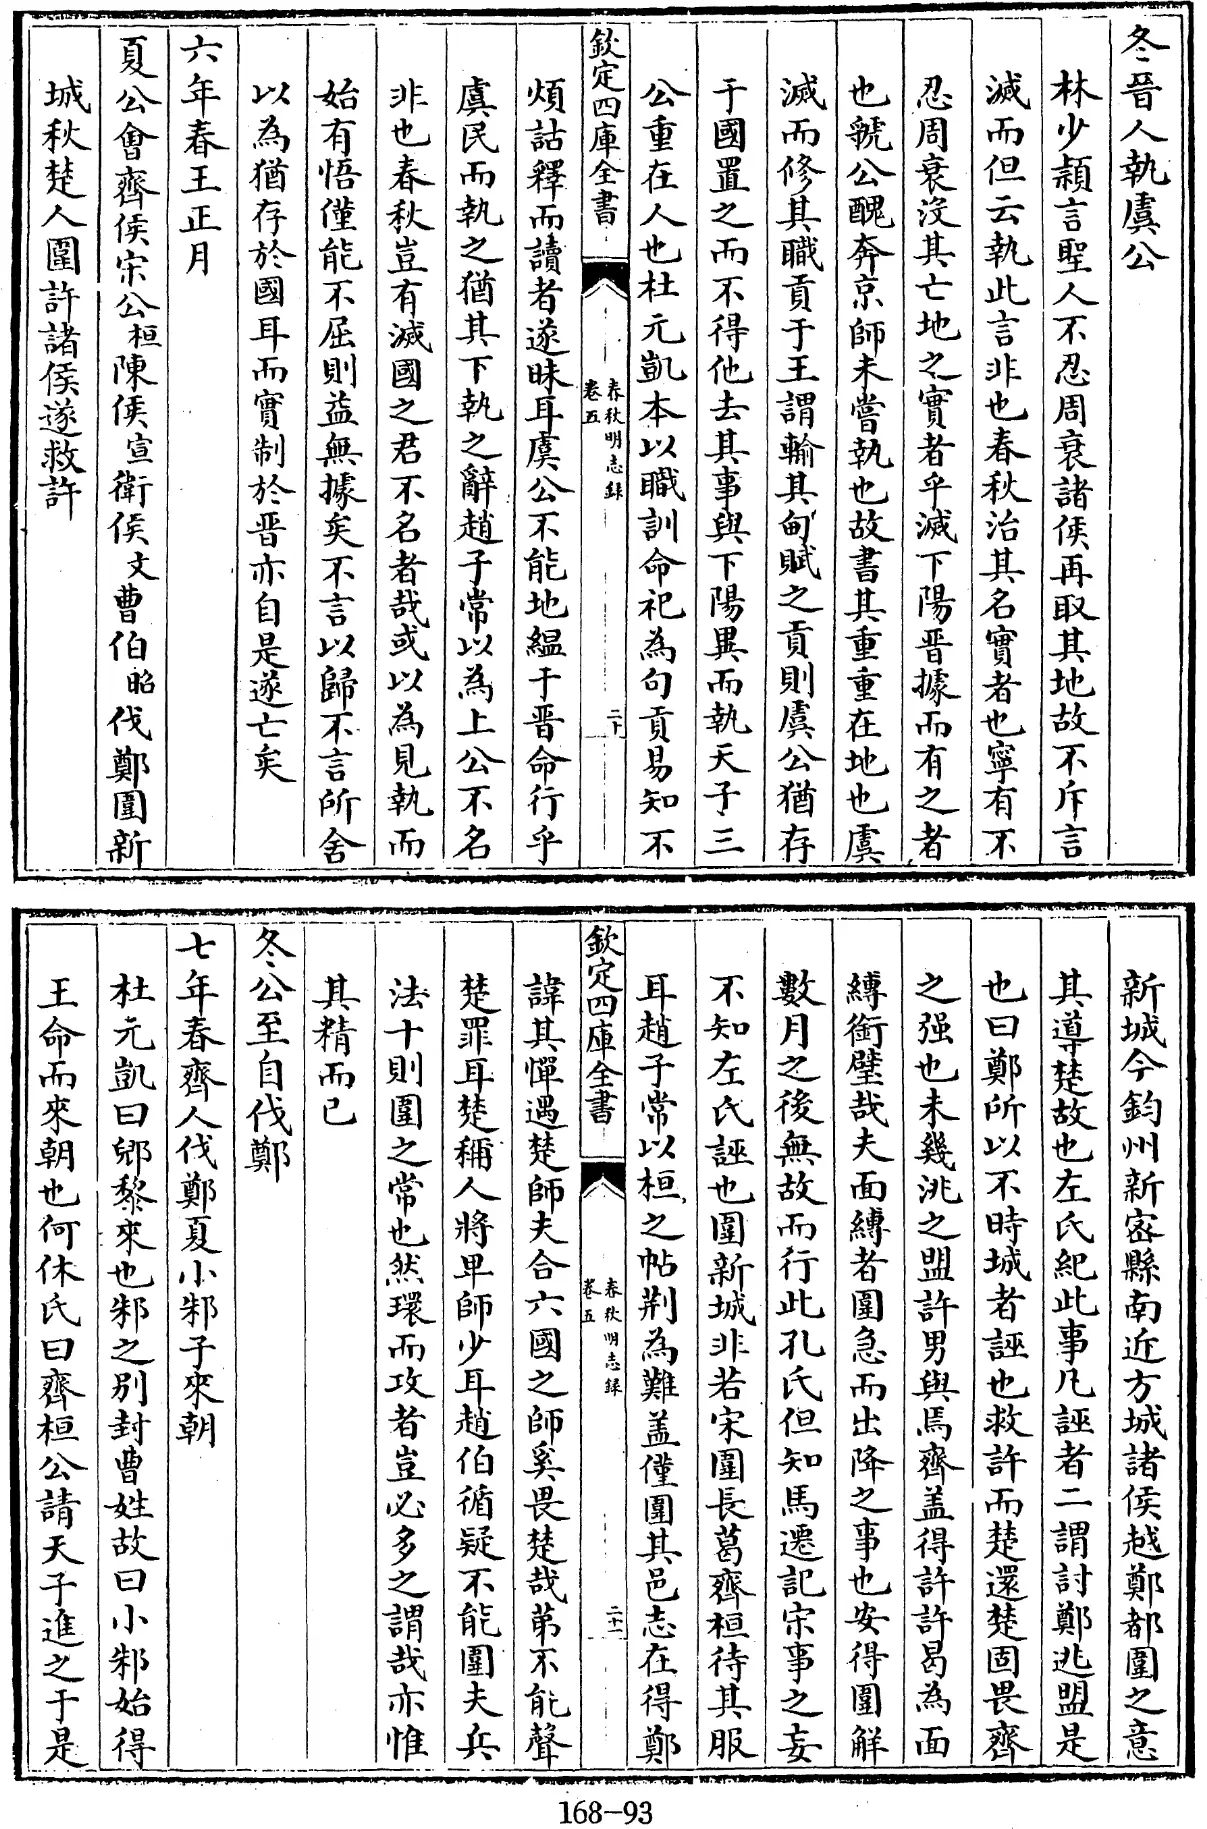 冬晉人執虞公
林少穎言聖人不忍周衰諸侯再取其地故不斥言
滅而但云執此言非也春秋治其名實者也寧有不
忍周衰沒其亡地之實者乎滅下陽晉據而有之者
也虢公醜奔京師未嘗執也故書其重重在地也虞
滅而修其職貢于王謂輸其甸賦之貢則虞公猶存
于國置之而不得他去其事與下陽異而執天子三
公重在人也杜元凱本以職訓命祀為句貢易知不
欽定四庫全書
春秋明志錄
卷五
二十
煩詁釋而讀者遂昧耳虞公不能地縕于晉命行乎
虞民而執之猶其下執之辭趙子常以為上公不名
非也春秋豈有滅國之君不名者哉或以為見執而
始有悟僅能不屈則益無據矣不言以歸不言所舍
以為猶存於國耳而實制於晉亦自是遂亡矣
六年春王正月
夏公會齊侯宋公桓陳侯宣衛侯文曹伯昭伐鄭圍新
城秋楚人圍許諸侯遂救許
新城今鈞州新密縣南近方城諸侯越鄭都圍之意
其導楚故也左氏紀此事凡誣者二謂討鄭逃盟是
也曰鄭所以不時城者誣也救許而楚還楚固畏齊
之强也未幾洮之盟許男與焉齊盖得許許曷為面
縛銜璧哉夫面縛者圍急而出降之事也安得圍解
數月之後無故而行此孔氏但知馬遷記宋事之妄
不知左氏誣也圍新城非若宋圍長葛齊桓待其服
耳趙子常以桓之帖荆為難盖僅圍其邑志在得鄭
欽定四庫全書
春秋明志錄
卷五
二十一
諱其憚遇楚師夫合六國之師奚畏楚哉第不能聲
楚罪耳楚稱人將卑師少耳趙伯循疑不能圍夫兵
法十則圍之常也然環而攻者豈必多之謂哉亦惟
其精而已
冬公至自伐鄭
七年春齊人伐鄭夏小邾子來朝
杜元凱曰郳黎來也邾之别封曹姓故曰小邾始得
王命而來朝也何休氏曰齊桓公請天子進之于是
168-93